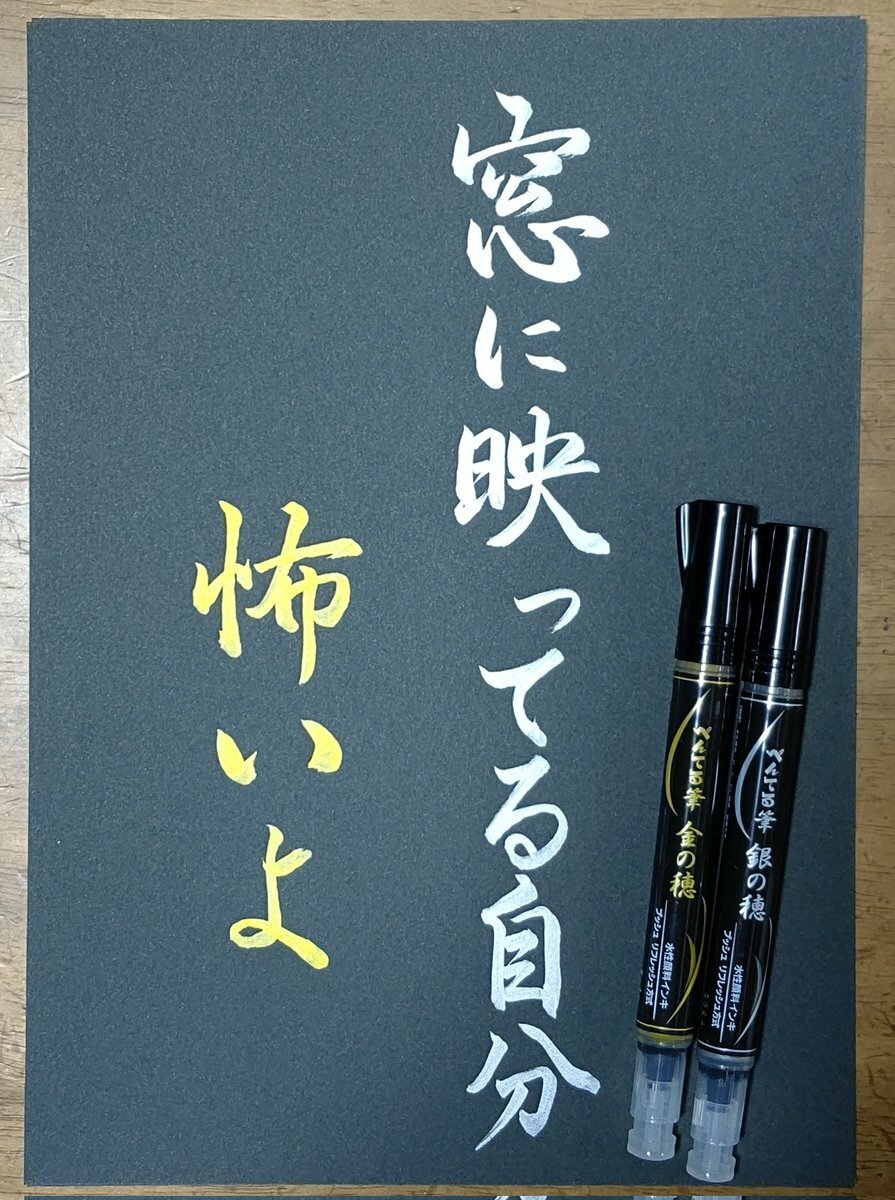 窓に映ってる自分
怖いよ
ぺんてる筆 銀の穂
水性顔料インキ
プッシュ リフレッシュ方式
ぺんてる筆 金の穂
水性顔料インキ
プッシュ リフレッシュ方式